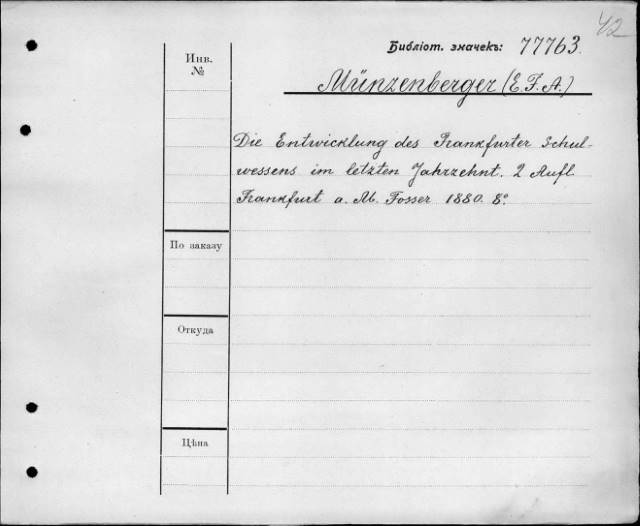 42
Библіот. значекъ: 77763.
Инв.
№
Münzenberger (E. F. A.)
Die Entwicklung des Frankfurter Schul-
wessens im letzten Jahrzehnt. 2 Aufl
Frankfurt a. M. Fosser 1880. 8°.
По заказу
Откуда
Цѣна